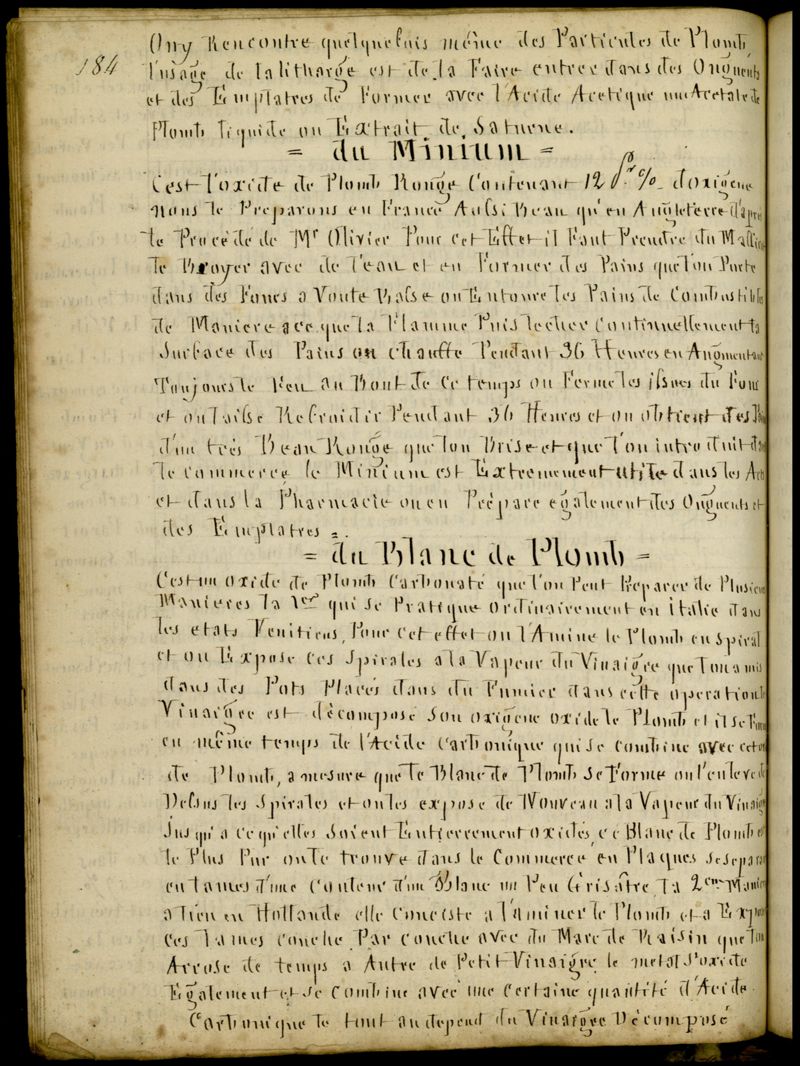 184
On y Rencontre quelquefois même des Particules de Plomb,
l'usage de la litharge est de la Faire entrer dans des Onguents
et des Emplatres de Former avec l'Acide Acetique un Acetate de
Plomb liquide ou Extrait de Saturne.
= du Minium =
C'est l'oxide de Plomb Rouge Contenant 12 P.r % d'oxigene
nous le Preparons en France Aussi Beau qu'en Angleterre d'apré
le Procédé de Mr Olivier Pour cet Effet il Faut Prendre du Massico
le Broyer avec de l'eau et en Former des Pains que l'on Porte
dans des Fours a Voute Basse on Entoure les Pains de Combustibles
de Maniere a ce que la Flamme Puis lecher Continuellement la
Surface des Pains on chauffe Pendant 36 Heures en Augmentant
Toujours le Feu au Bout de ce temps on Ferme les issues du Four
et on Laisse Refroidir Pendant 36 Heures et on obtient des
d'un très Beau Rouge que l'on Brise et que l'on introduit dans
le commerce le Minium est Extremement utile dans les Arts
et dans la Pharmacie ou on Prépare également des Onguents et
des Emplatres =.
= du Blanc de Plomb =
C'est un oxide de Plomb Carbonaté que l'on Peut Preparer de Plusieurs
Manieres la 1ere qui se Pratique ordinairement en italie dans
les etats Venitiens, Pour cet effet on l'Amine le Plomb en Spiral
et on Expose ces Spirales a la Vapeur du Vinaigre que l'on a mis
dans des Pots Placés dans du Fumier dans cette operation le
Vinaigre est décomposé Son oxigene oxide le Plomb et il se Forme
en même temps de l'Acide Carbonique qui se combine avec cet ox
de Plomb, a mesure que le Blanc de Plomb se Forme on l'enleve de
Dessus les Spirales et on les expose de Nouveau a la Vapeur du Vinaigre
Jusqu'a ce qu'elles Soient Entierement oxidés, ce Blanc de Plomb est
le Plus Pur on le trouve dans le Commerce en Plaques se separant
en lames d'une Couleur d'un Blanc un Peu Grisâtre la 2eme Maniere
a lieu en Hollande elle Conciste a l'aminer le Plomb et a Expos
ces lames couche Par couche avec du Marc de Raisin que l'on
Arrose de temps a Autre de Petit Vinaigre le metal s'oxide
Egalement et se combine avec une certaine quantité d'Acide
Carbonique le tout au depend du Vinaigre Décomposé